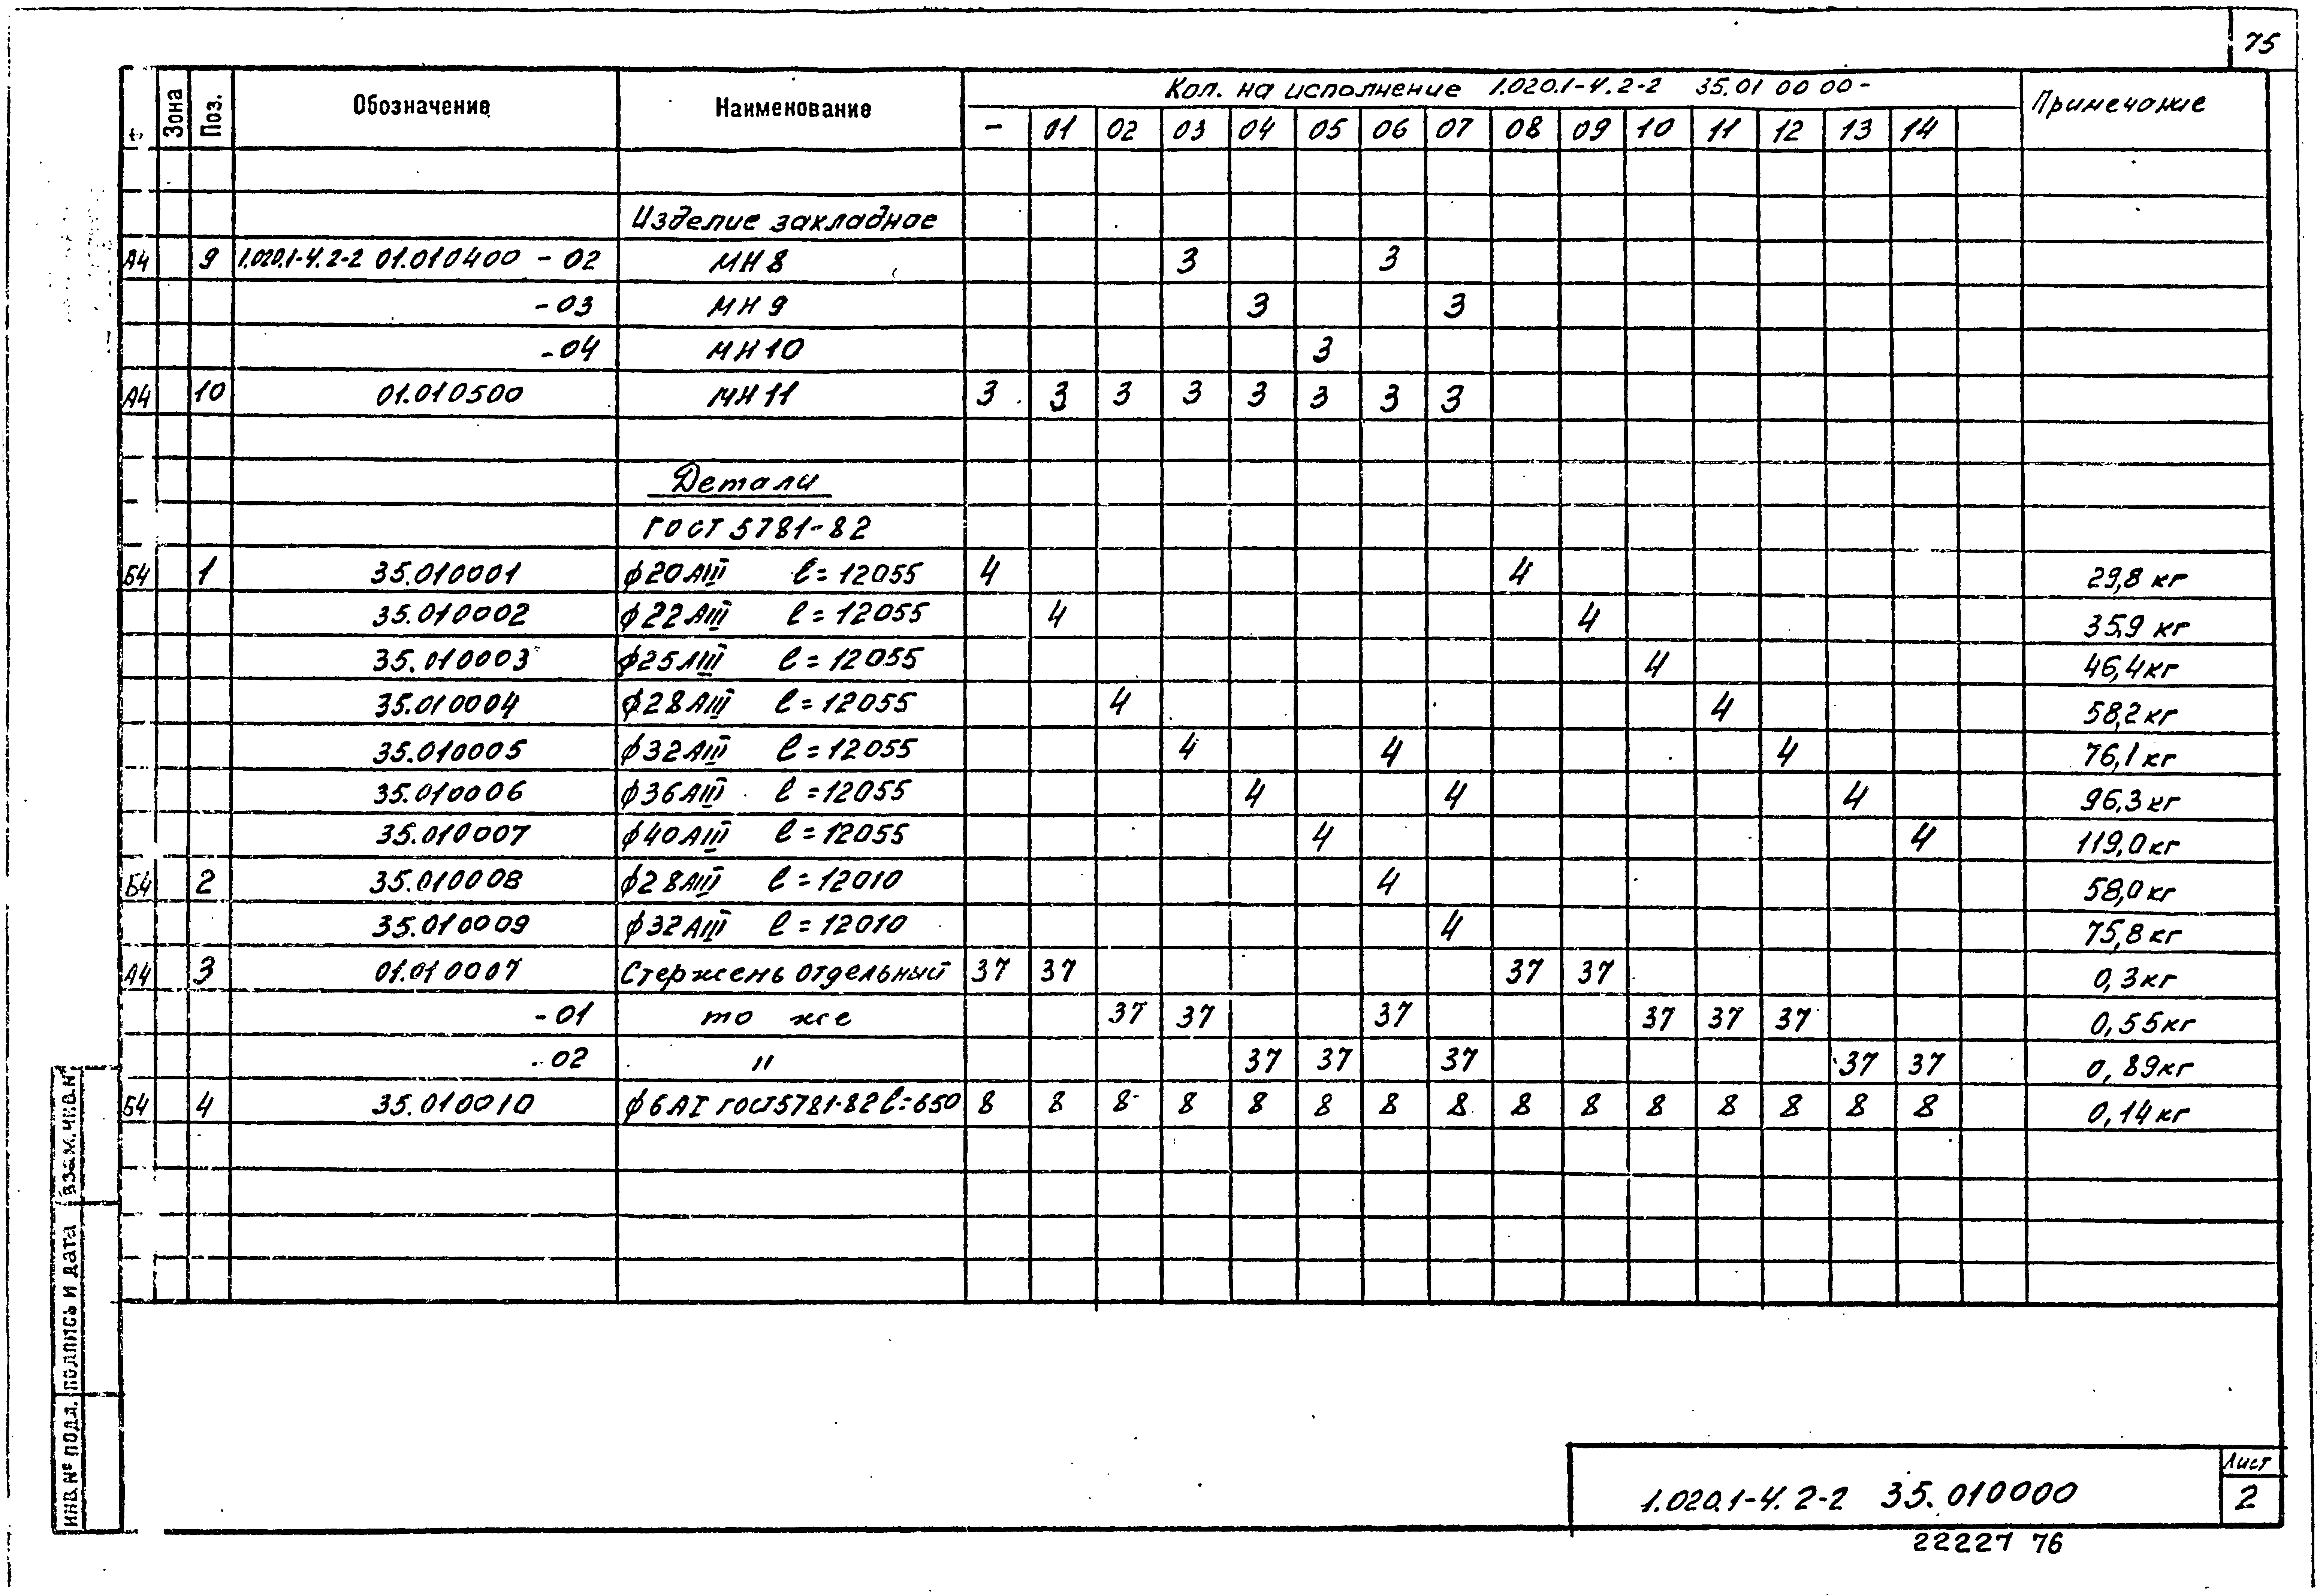 75
Зона Поз. Обозначение Наименование Кол. на исполнение 1.020.1-4.2-2 35.01 00 00- Примечание
- 01 02 03 04 05 06 07 08 09 10 11 12 13 14
Изделие закладное
А4 9 1.020.1-4.2-2 01.010400 -02 МН8 3 3
-03 МН9 3 3
-04 МН10 3
А4 10 01.010500 МН11 3 3 3 3 3 3 3 3
Детали
ГОСТ 5781-82
Б4 1 35.010001 ф20АIII ℓ=12055 4 4 29,8 кг
35.010002 ф22АIII ℓ=12055 4 4 35,9 кг
35.010003 ф25АIII ℓ=12055 4 46,4кг
35.010004 ф28АIII ℓ=12055 4 4 58,2кг
35.010005 ф32АIII ℓ=12055 4 4 4 76,1кг
35.010006 ф36АIII ℓ=12055 4 4 4 96,3кг
35.010007 ф40АIII ℓ=12055 4 4 119,0кг
Б4 2 35.010008 ф28АIII ℓ=12010 4 58,0кг
35.010009 ф32АIII ℓ=12010 4 75,8кг
А4 3 01.010007 Стержень отдельный 37 37 37 37 0,3кг
-01 то же 37 37 37 37 37 37 0,55кг
-02 " 37 37 37 37 37 0,89кг
Б4 4 35.010010 ф6АI ГОСТ5781-82 ℓ=650 8 8 8 8 8 8 8 8 8 8 8 8 8 8 8 0,14кг
ИНВ.№ ПОДЛ. ПОДПИСЬ И ДАТА ВЗАМ.ИНВ.№
1.020.1-4.2-2 35.010000
Лист
2
22227 76